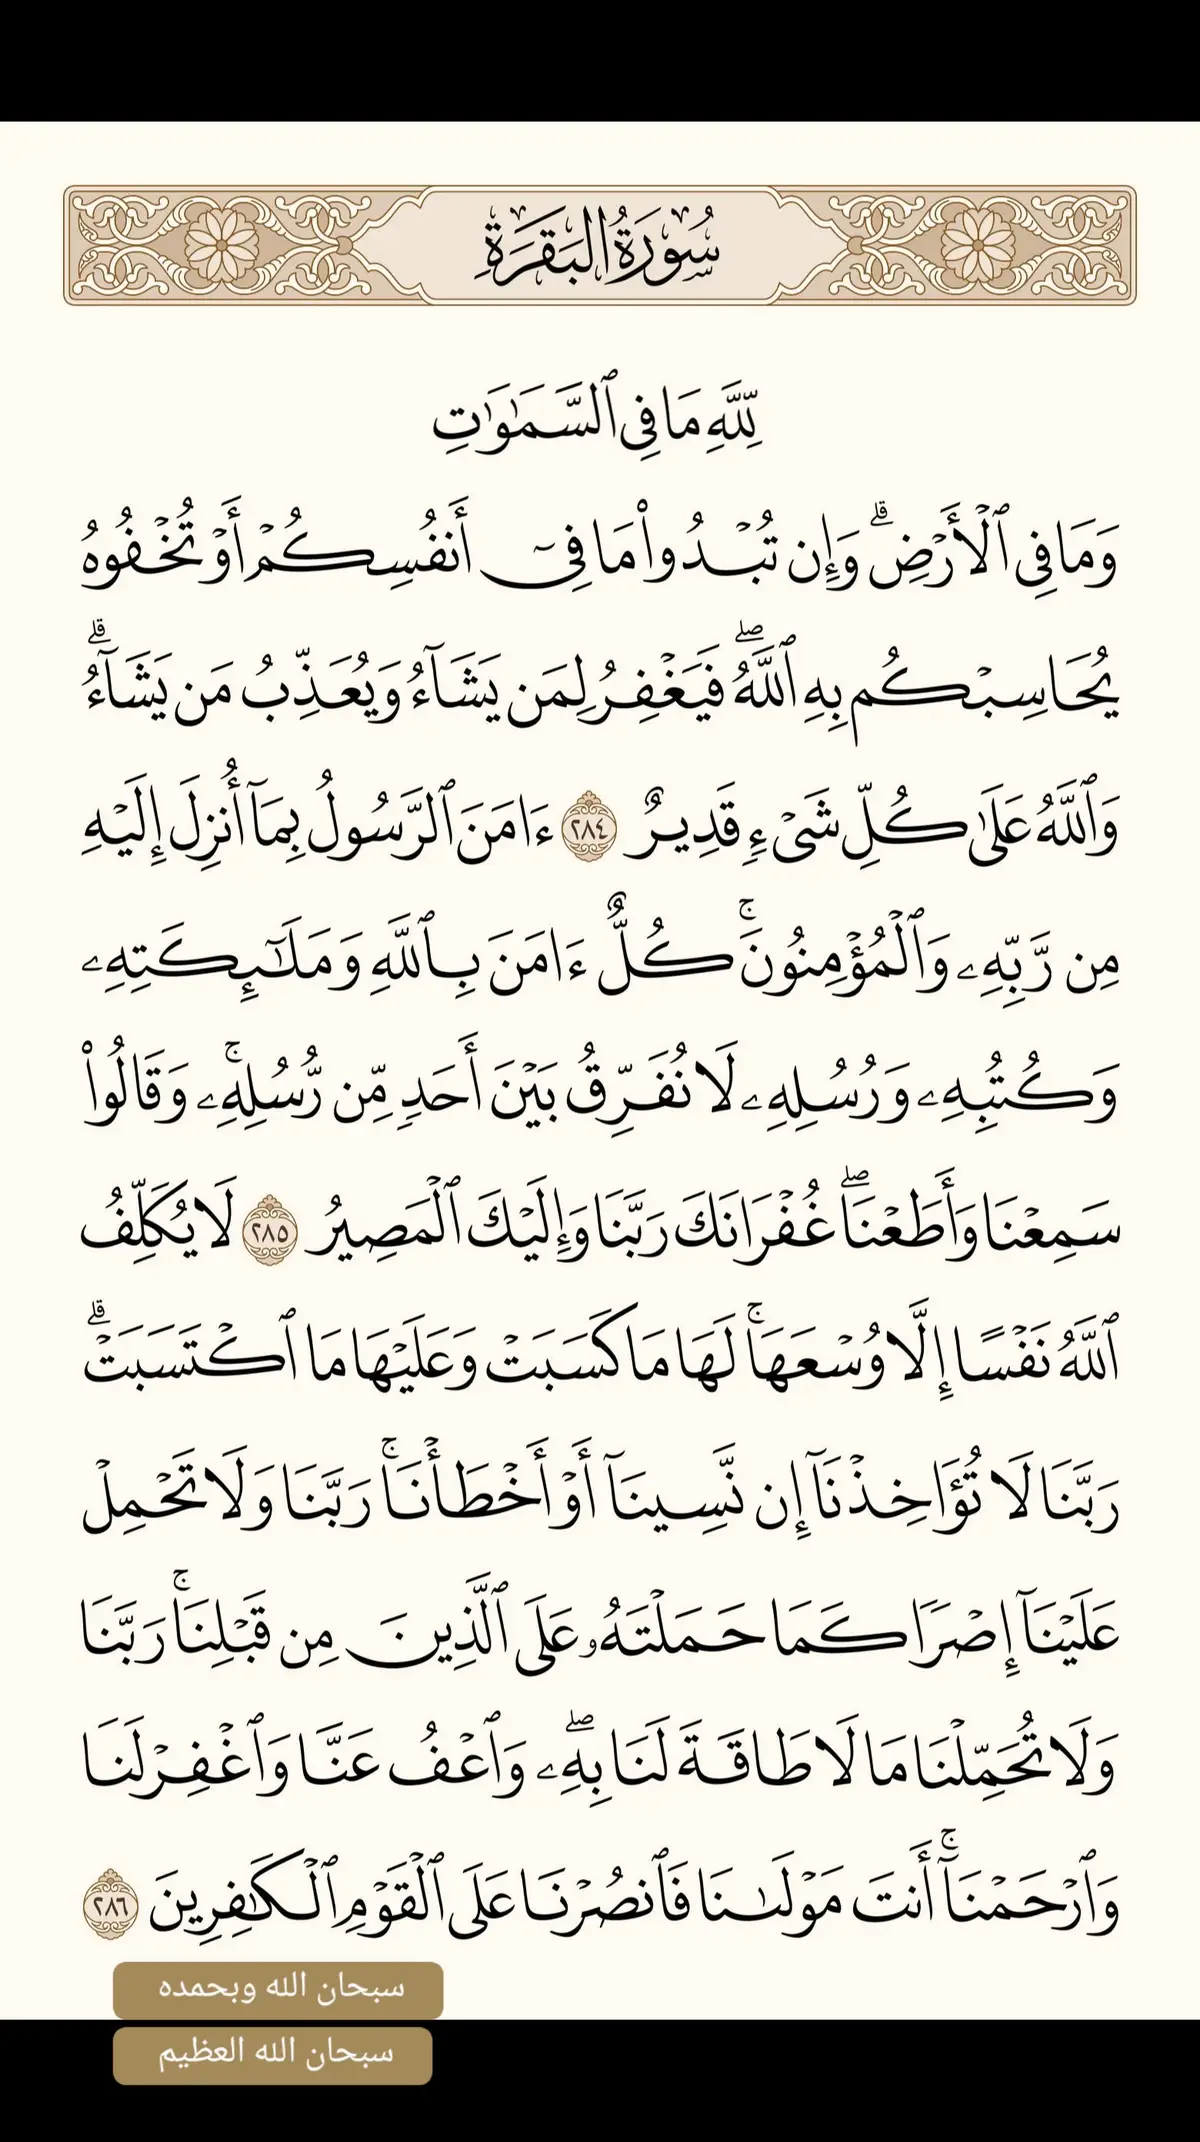 سُورَةُ البَقَرَةِ
لِّلَّهِ مَا فِي ٱلسَّمَٰوَٰتِ
وَمَا فِي ٱلۡأَرۡضِۗ وَإِن تُبۡدُواْ مَا فِيٓ أَنفُسِكُمۡ أَوۡ تُخۡفُوهُ
يُحَاسِبۡكُم بِهِ ٱللَّهُۖ فَيَغۡفِرُ لِمَن يَشَآءُ وَيُعَذِّبُ مَن يَشَآءُۗ
وَٱللَّهُ عَلَىٰ كُلِّ شَيۡءٖ قَدِيرٌ ٢٨٤ ءَامَنَ ٱلرَّسُولُ بِمَآ أُنزِلَ إِلَيۡهِ
مِن رَّبِّهِۦ وَٱلۡمُؤۡمِنُونَۚ كُلٌّ ءَامَنَ بِٱللَّهِ وَمَلَٰٓئِكَتِهِۦ
وَكُتُبِهِۦ وَرُسُلِهِۦ لَا نُفَرِّقُ بَيۡنَ أَحَدٖ مِّن رُّسُلِهِۦۚ وَقَالُواْ
سَمِعۡنَا وَأَطَعۡنَاۖ غُفۡرَانَكَ رَبَّنَا وَإِلَيۡكَ ٱلۡمَصِيرُ ٢٨٥ لَا يُكَلِّفُ
ٱللَّهُ نَفۡسًا إِلَّا وُسۡعَهَاۚ لَهَا مَا كَسَبَتۡ وَعَلَيۡهَا مَا ٱكۡتَسَبَتۡۗ
رَبَّنَا لَا تُؤَاخِذۡنَآ إِن نَّسِينَآ أَوۡ أَخۡطَأۡنَاۚ رَبَّنَا وَلَا تَحۡمِلۡ
عَلَيۡنَآ إِصۡرٗا كَمَا حَمَلۡتَهُۥ عَلَى ٱلَّذِينَ مِن قَبۡلِنَاۚ رَبَّنَا
وَلَا تُحَمِّلۡنَا مَا لَا طَاقَةَ لَنَا بِهِۦۖ وَٱعۡفُ عَنَّا وَٱغۡفِرۡ لَنَا
وَٱرۡحَمۡنَآۚ أَنتَ مَوۡلَىٰنَا فَٱنصُرۡنَا عَلَى ٱلۡقَوۡمِ ٱلۡكَٰفِرِينَ ٢٨٦
سبحان الله وبحمده
سبحان الله العظيم